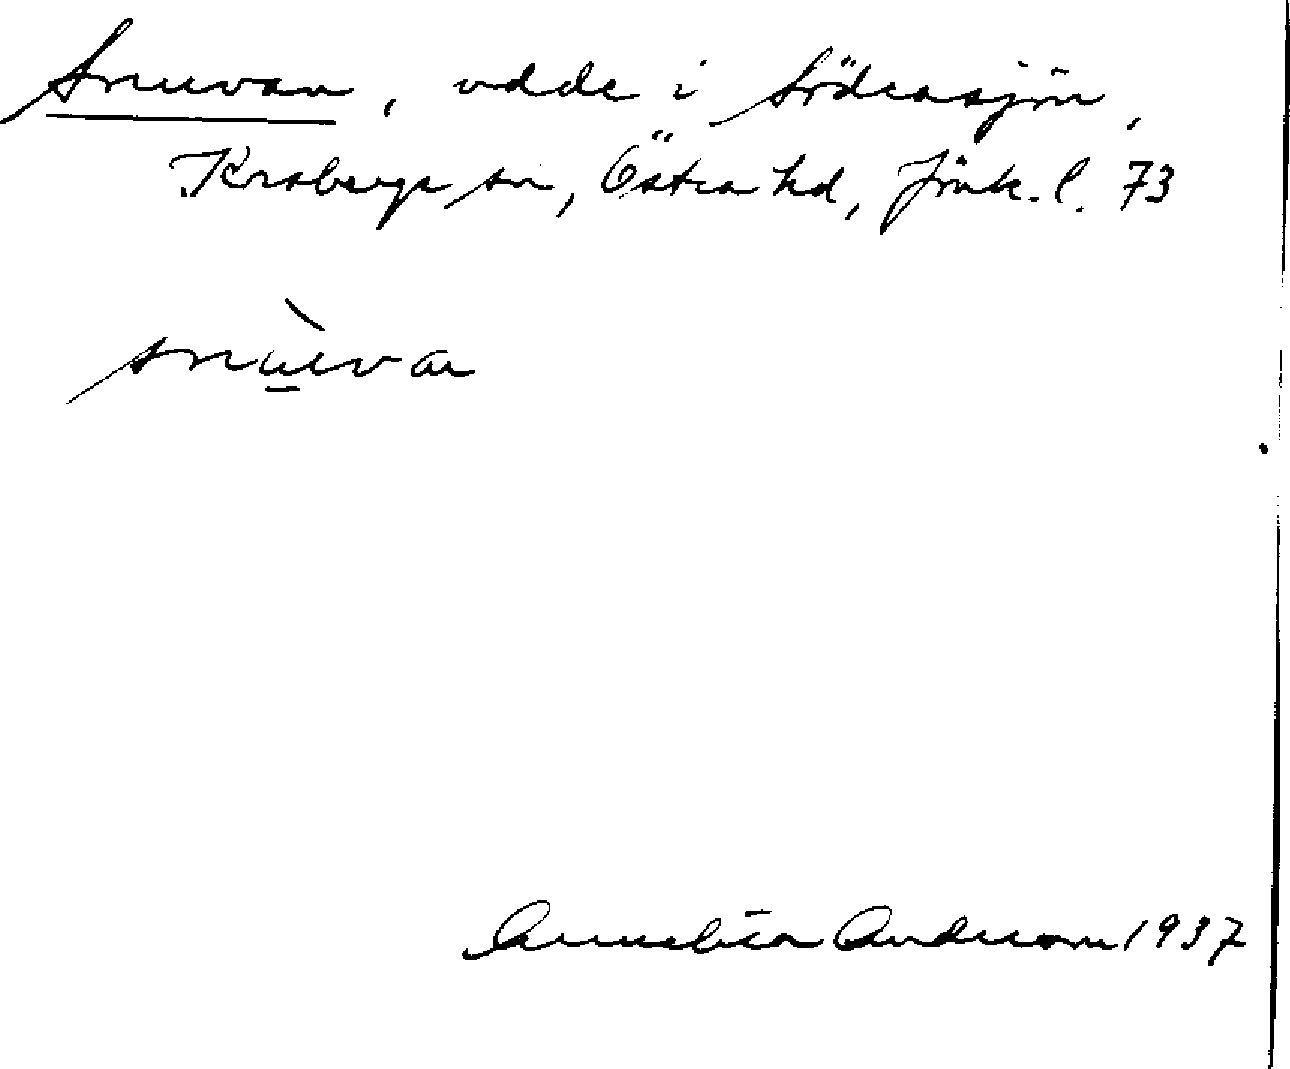 Snuvan, udde i Södrasjön,
Korsberga sn, Östra hd, Jönk. l. 73
snùvan
Annelisa Anderson 1937